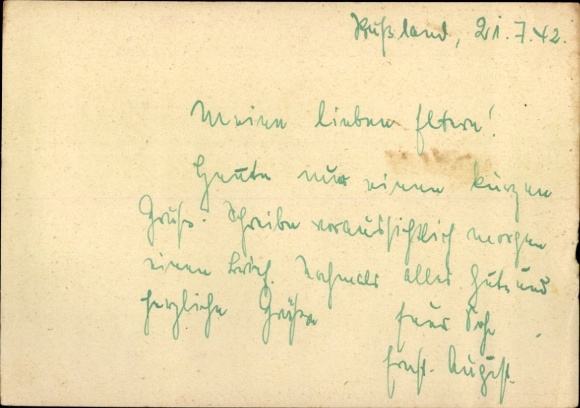 Rußland, 21.7.42.
Meine lieben Eltern!
Heute nur einen kurzen
Gruß. Schreibe voraussichtlich morgen
einen Brief. Nochmals alles Gute und
herzliche Grüße Euer Sohn
Ernst-August.